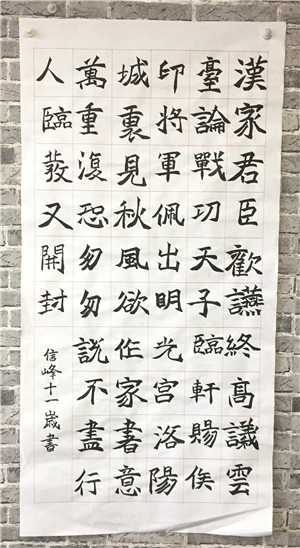 漢家君臣歡讌終高議雲
臺論戰功天子臨軒賜侯
印將軍佩出明光宮洛陽
城裏見秋風欲作家書意
萬重復恐匆匆說不盡行
人臨發又開封
信峰十一歲書